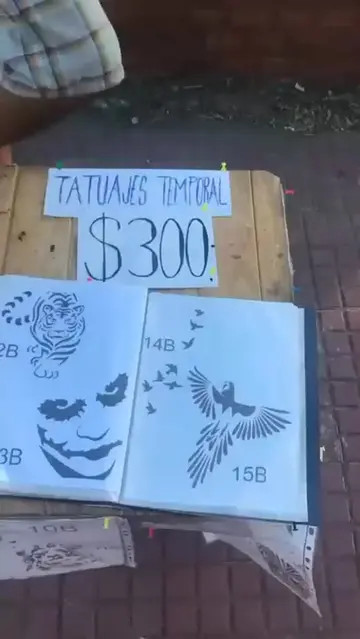 TATUAJES TEMPORAL
$300
2B
14B
3B
15B
10B